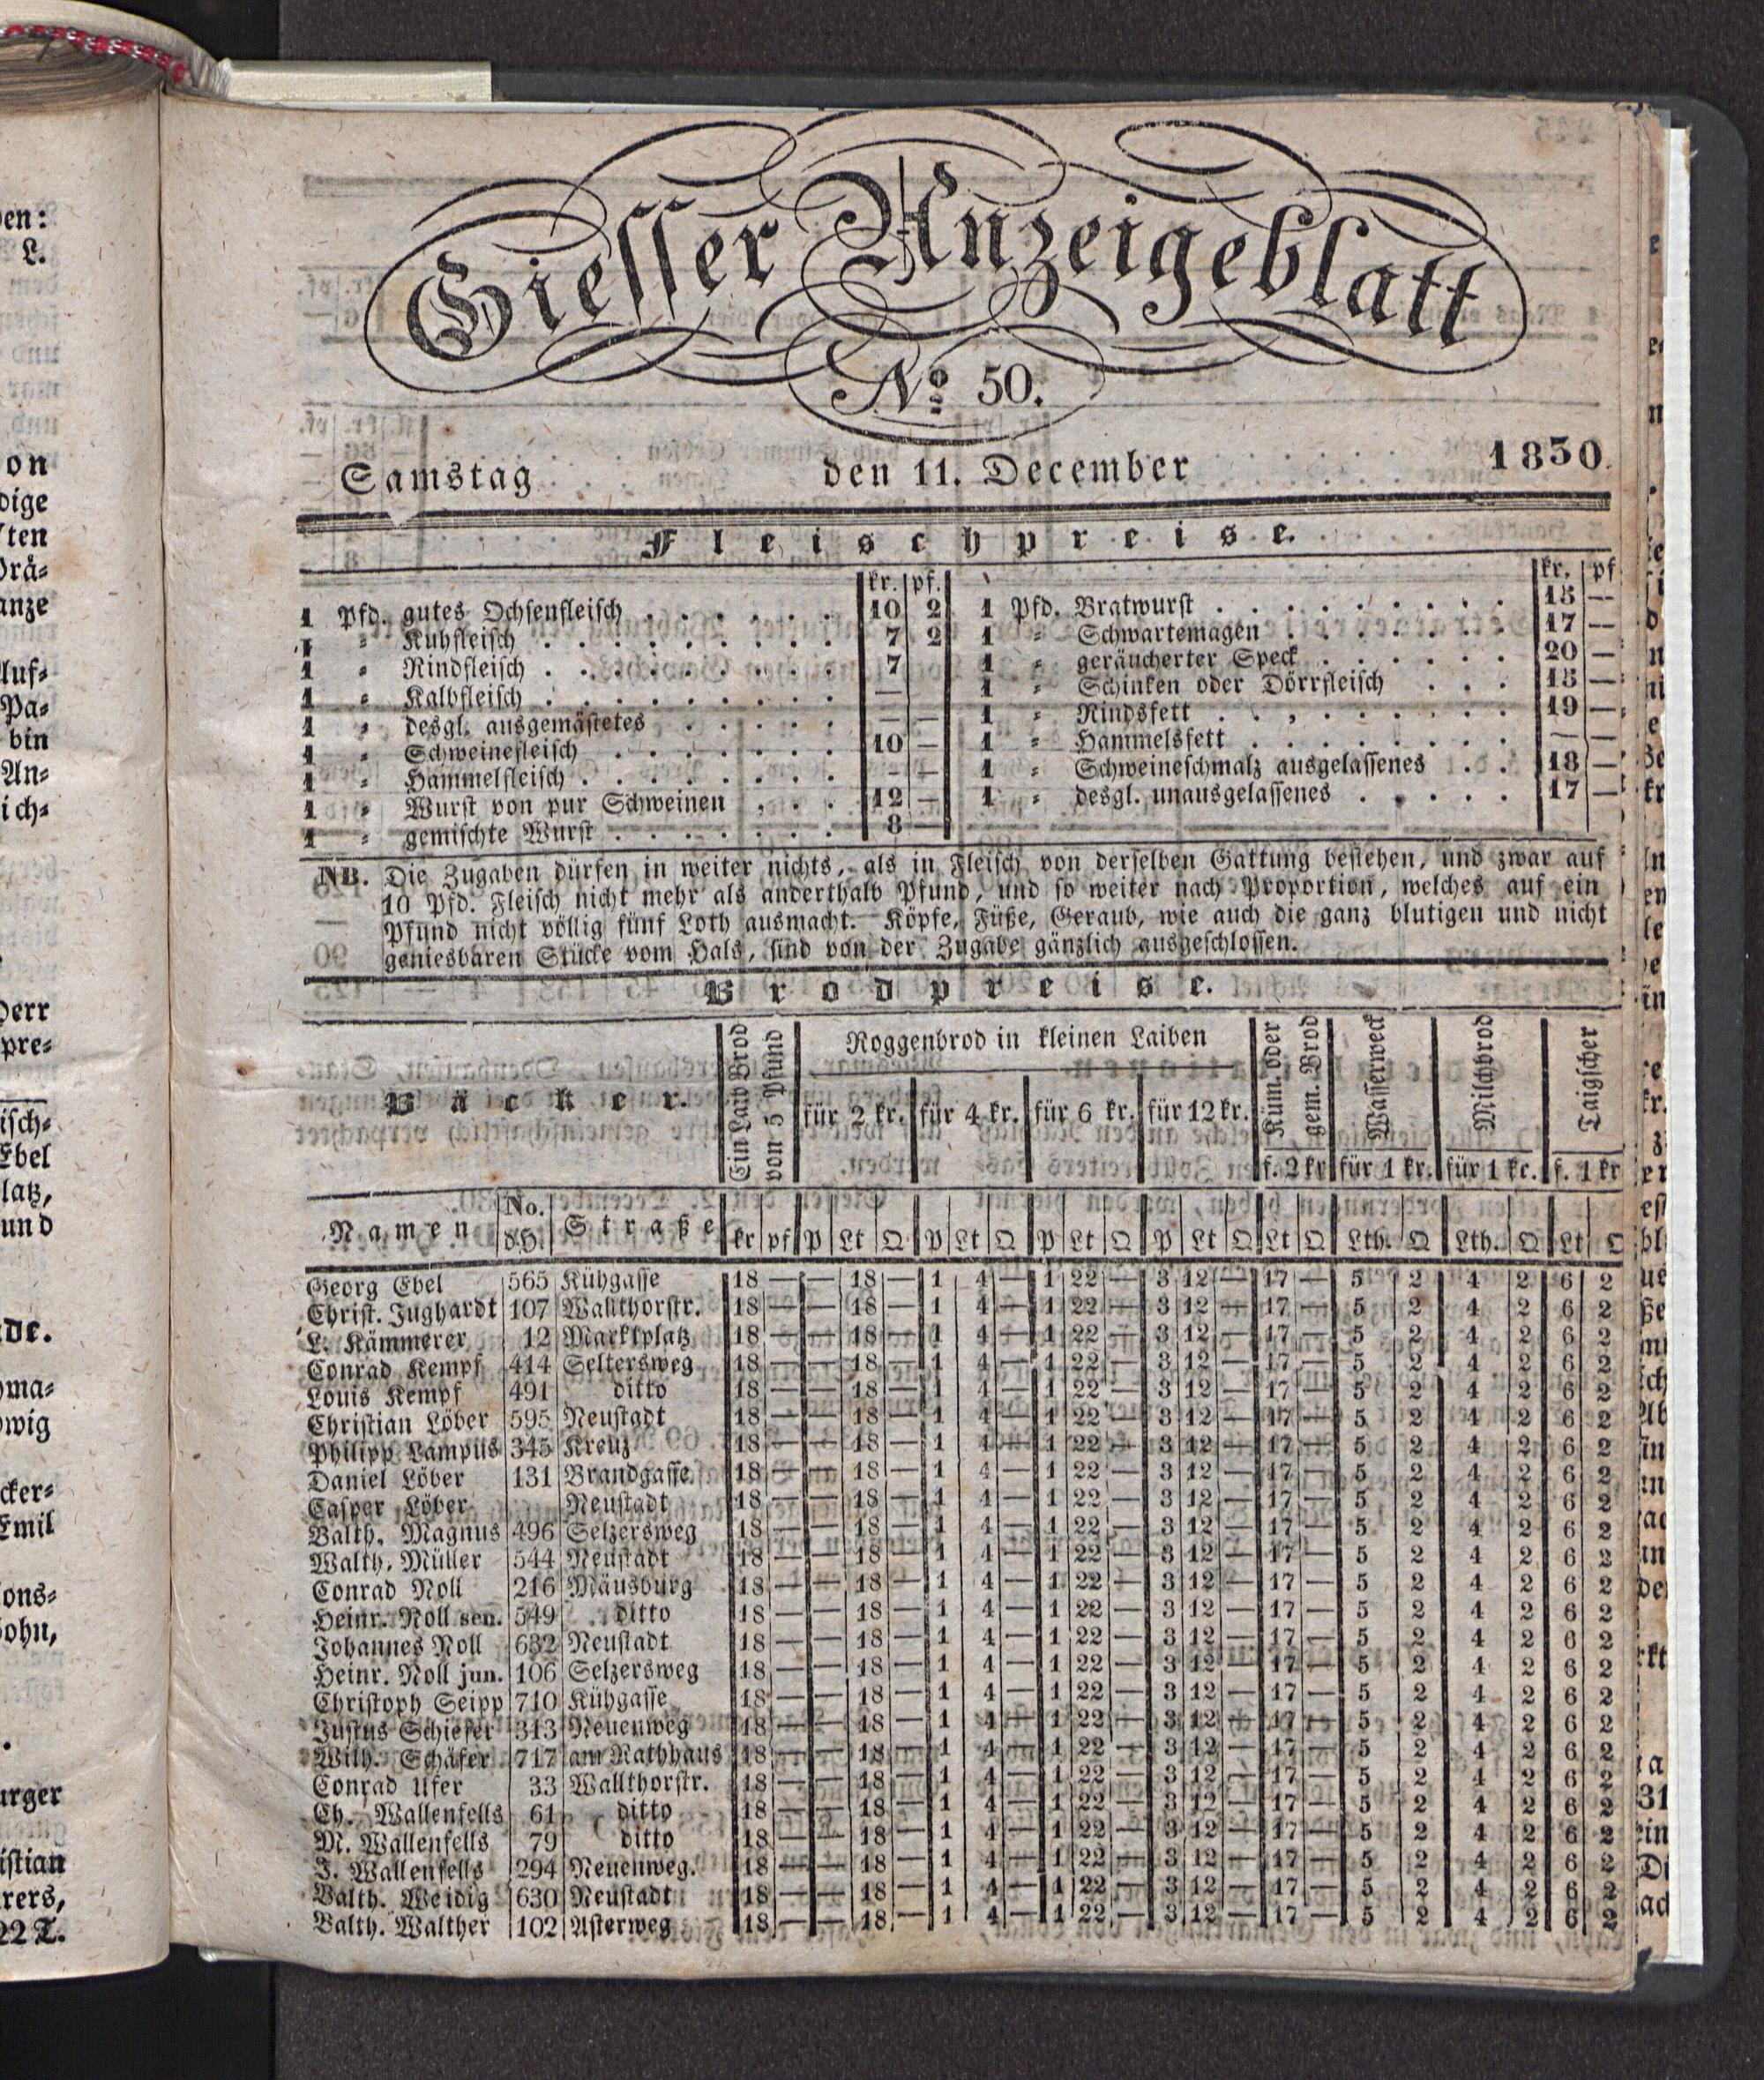 Giesser Anzeigeblatt
No 50.
Samstag den 11. December 1830.
Fleischpreise.
kr. pf. kr. pf
1 Pfd. gutes Ochsenfleisch . . . . . . 10 2 1 Pfd. Bratwurst . . . . . . . . . 15 —
1 = Kuhfleisch . . . . . . . . . 7 2 1 = Schwartemagen . . . . . . . 17 —
1 = Rindfleisch . . . . . . . . . 7 1 = geräucherter Speck . . . . . . 20 —
1 = Kalbfleisch . . . . . . . . . — 1 = Schinken oder Dörrfleisch . . . 15 —
1 = desgl. ausgemästetes . . . . . — — 1 = Rindsfett . . . . . . . . . 19 —
1 = Schweinefleisch . . . . . . . 10 — 1 = Hammelsfett . . . . . . . . — —
1 = Hammelfleisch . . . . . . . . — — 1 = Schweineschmalz ausgelassenes . . 18 —
1 = Wurst von pur Schweinen . . . 12 — 1 = desgl. unausgelassenes . . . . . 17 —
1 = gemischte Wurst . . . . . . . 8 —
NB. Die Zugaben dürfen in weiter nichts, als in Fleisch von derselben Gattung bestehen, und zwar auf
10 Pfd. Fleisch nicht mehr als anderthalb Pfund, und so weiter nach Proportion, welches auf ein
Pfund nicht völlig fünf Loth ausmacht. Köpfe, Füße, Geraub, wie auch die ganz blutigen und nicht
geniesbaren Stücke vom Hals, sind von der Zugabe gänzlich ausgeschlossen.
Brodpreise.
Bäcker. Ein Laib Brod von 5 Pfund Roggenbrod in kleinen Laiben Küm. oder gem. Brod Wasserweck Milchbrod Taigscher
für 2 kr. für 4 kr. für 6 kr. für 12 kr.
f. 2 kr für 1 kr. für 1 kr. f. 1 kr
Namen No. d.H. Straße kr pf P Lt Q P Lt Q P Lt Q P Lt Q Lt Q Lth. Q Lth. Q Lt Q
Georg Ebel 565 Kühgasse 18 — — 18 — 1 4 — 1 22 — 3 12 — 17 — 5 2 4 2 6 2
Christ. Jughardt 107 Wallthorstr. 18 — — 18 — 1 4 — 1 22 — 3 12 — 17 — 5 2 4 2 6 2
L. Kämmerer 12 Marktplatz 18 — — 18 — 1 4 — 1 22 — 3 12 — 17 — 5 2 4 2 6 2
Conrad Kempf 414 Seltersweg 18 — — 18 — 1 4 — 1 22 — 3 12 — 17 — 5 2 4 2 6 2
Louis Kempf 491 ditto 18 — — 18 — 1 4 — 1 22 — 3 12 — 17 — 5 2 4 2 6 2
Christian Löber 595 Neustadt 18 — — 18 — 1 4 — 1 22 — 3 12 — 17 — 5 2 4 2 6 2
Philipp Lampus 345 Kreuz 18 — — 18 — 1 4 — 1 22 — 3 12 — 17 — 5 2 4 2 6 2
Daniel Löber 131 Brandgasse 18 — — 18 — 1 4 — 1 22 — 3 12 — 17 — 5 2 4 2 6 2
Casper Löber Neustadt 18 — — 18 — 1 4 — 1 22 — 3 12 — 17 — 5 2 4 2 6 2
Balth. Magnus 496 Selzersweg 18 — — 18 — 1 4 — 1 22 — 3 12 — 17 — 5 2 4 2 6 2
Walth. Müller 544 Neustadt 18 — — 18 — 1 4 — 1 22 — 3 12 — 17 — 5 2 4 2 6 2
Conrad Noll 216 Mäusburg 18 — — 18 — 1 4 — 1 22 — 3 12 — 17 — 5 2 4 2 6 2
Heinr. Noll sen. 549 ditto 18 — — 18 — 1 4 — 1 22 — 3 12 — 17 — 5 2 4 2 6 2
Johannes Noll 632 Neustadt 18 — — 18 — 1 4 — 1 22 — 3 12 — 17 — 5 2 4 2 6 2
Heinr. Noll jun. 106 Selzersweg 18 — — 18 — 1 4 — 1 22 — 3 12 — 17 — 5 2 4 2 6 2
Christoph Seipp 710 Kühgasse 18 — — 18 — 1 4 — 1 22 — 3 12 — 17 — 5 2 4 2 6 2
Justus Schiefer 313 Neuenweg 18 — — 18 — 1 4 — 1 22 — 3 12 — 17 — 5 2 4 2 6 2
Wilh. Schäfer 717 am Rathhaus 18 — — 18 — 1 4 — 1 22 — 3 12 — 17 — 5 2 4 2 6 2
Conrad Ufer 33 Wallthorstr. 18 — — 18 — 1 4 — 1 22 — 3 12 — 17 — 5 2 4 2 6 2
Ch. Wallenfells 61 ditto 18 — — 18 — 1 4 — 1 22 — 3 12 — 17 — 5 2 4 2 6 2
M. Wallenfells 79 ditto 18 — — 18 — 1 4 — 1 22 — 3 12 — 17 — 5 2 4 2 6 2
J. Wallenfells 294 Neuenweg. 18 — — 18 — 1 4 — 1 22 — 3 12 — 17 — 5 2 4 2 6 2
Balth. Weidig 630 Neustadt 18 — — 18 — 1 4 — 1 22 — 3 12 — 17 — 5 2 4 2 6 2
Balth. Walther 102 Asterweg 18 — — 18 — 1 4 — 1 22 — 3 12 — 17 — 5 2 4 2 6 2